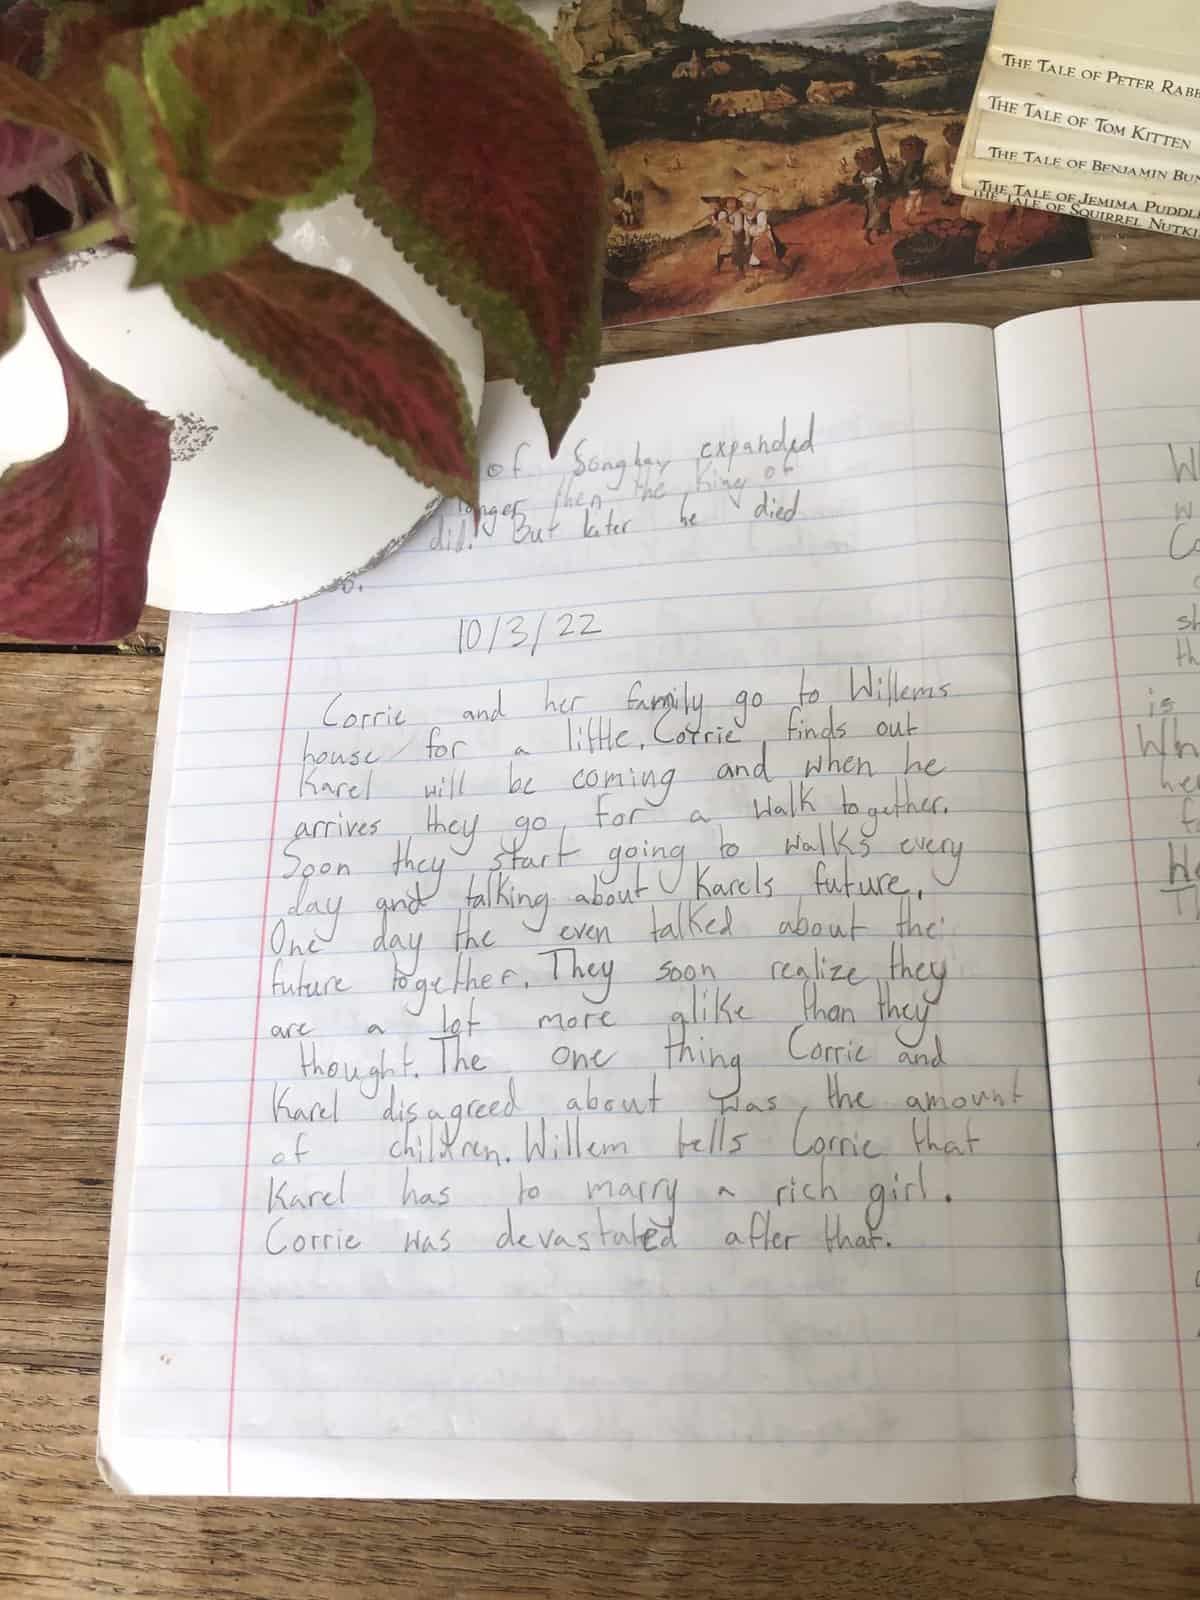 THE TALE OF PETER RABB
THE TALE OF TOM KITTEN
THE TALE OF BENJAMIN BUN
THE TALE OF JEMIMA PUDDLE
THE TALE OF SQUIRREL NUTKI
of Songhay expanded
longer then the King of
did. But later he died
10/3/22
Corrie and her family go to Willems
house for a little. Corrie finds out
Karel will be coming and when he
arrives they go for a walk together.
Soon they start going to walks every
day and talking about Karels future.
One day the even talked about the
future together. They soon realize they
are a lot more alike than they
thought. The one thing Corrie and
Karel disagreed about was, the amount
of children. Willem tells Corrie that
Karel has to marry a rich girl.
Corrie was devastated after that.
is